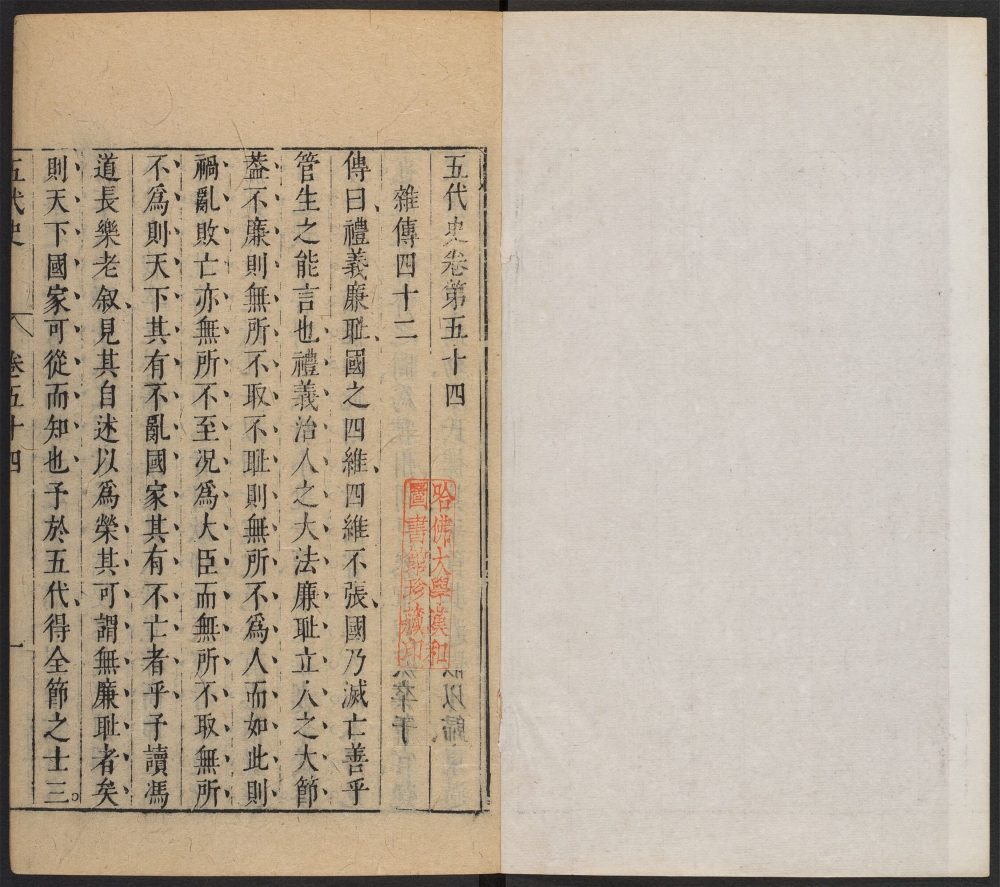 五代史卷第五十四
雜傳四十二
傳曰禮義廉耻國之四維四維不張國乃滅亡善乎
管生之能言也禮義治人之大法廉耻立人之大節
蓋不廉則無所不取不耻則無所不爲人而如此則
禍亂敗亡亦無所不至况爲大臣而無所不取無所
不爲則天下其有不亂國家其有不亡者乎予讀馮
道長樂老叙見其自述以爲榮其可謂無廉耻者矣
則天下國家可從而知也予於五代得全節之士三
五代史 卷五十四 一
哈佛大學漢和
圖書館珍藏印